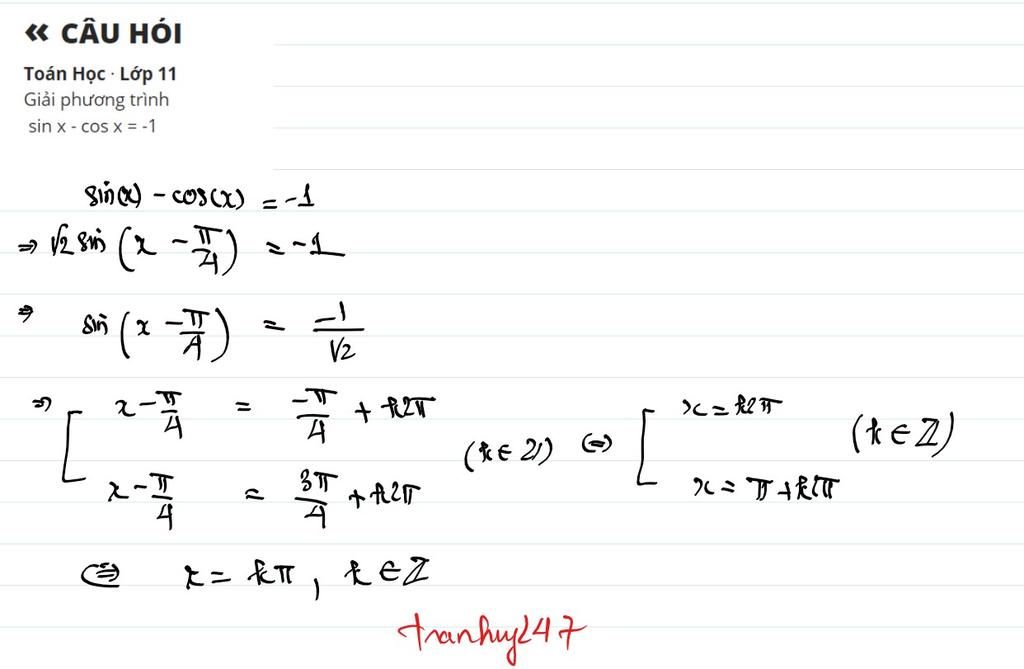 « CÂU HỎI
Toán Học · Lớp 11
Giải phương trình
sin x - cos x = -1
sin(x) - cos(x) = -1
⇒ √2 sin (x - π/4) = -1
⇒ sin (x - π/4) = -1/√2
⇒ [ x - π/4 = -π/4 + k2π
x - π/4 = 3π/4 + k2π (k ∈ Z) ⇔ [ x = k2π
x = π + k2π (k ∈ Z)
⇔ x = kπ, k ∈ Z
tranhuy247